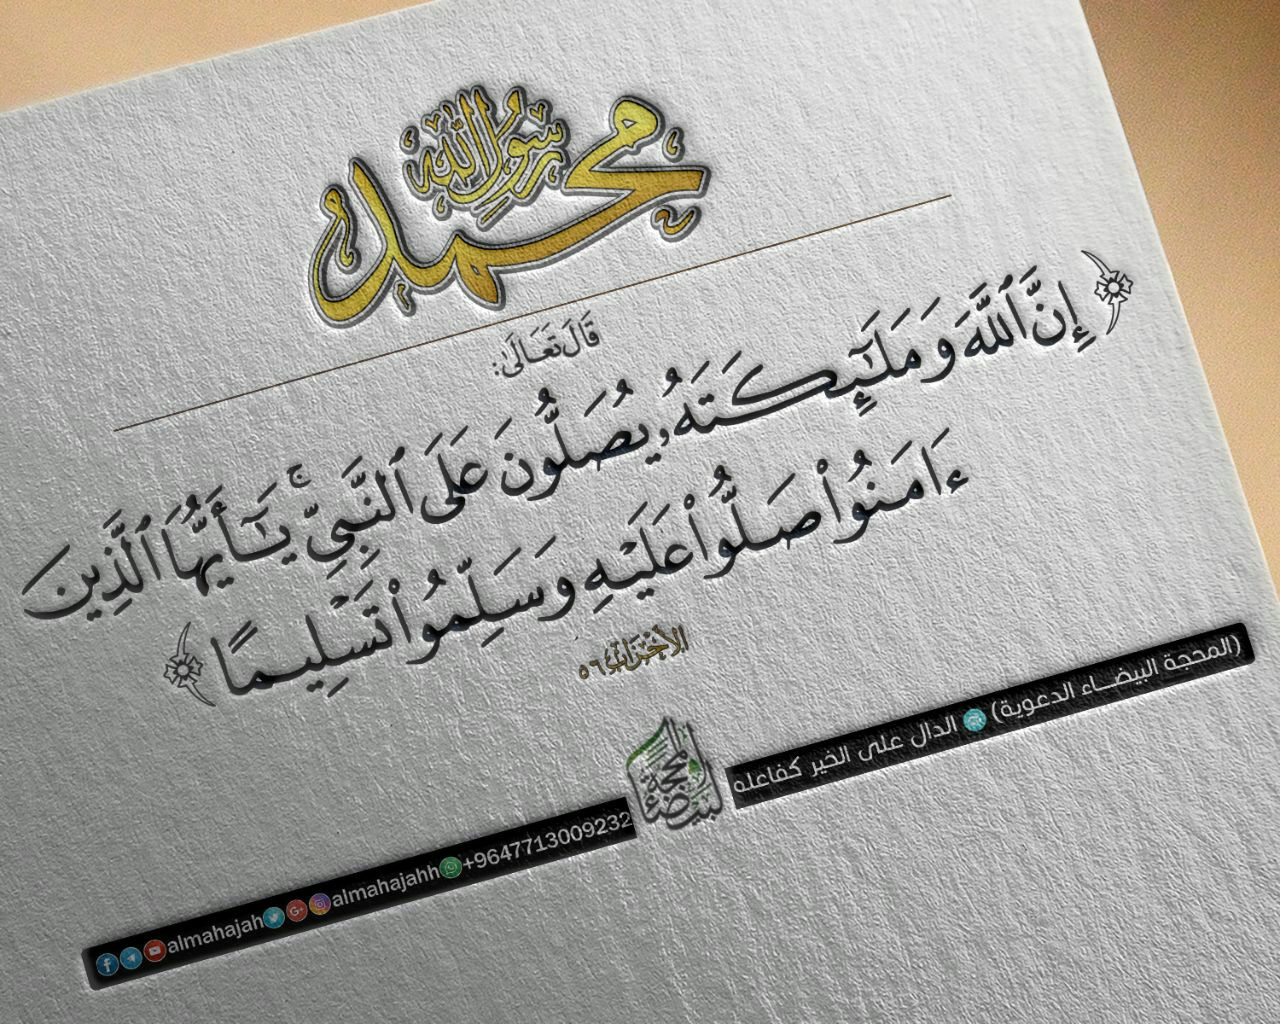 محمد رسول الله
قَالَ تَعَالَىٰ:
﴿إِنَّ ٱللَّهَ وَمَلَـٰٓئِكَتَهُۥ يُصَلُّونَ عَلَى ٱلنَّبِيِّۚ يَـٰٓأَيُّهَا ٱلَّذِينَ
ءَامَنُوا۟ صَلُّوا۟ عَلَيْهِ وَسَلِّمُوا۟ تَسْلِيمًا﴾
الأحزاب ٥٦
(المحجة البيضـــاء الدعوية) الدال على الخير كفاعله
المحجة البيضاء
almahajah almahajahh +9647713009232